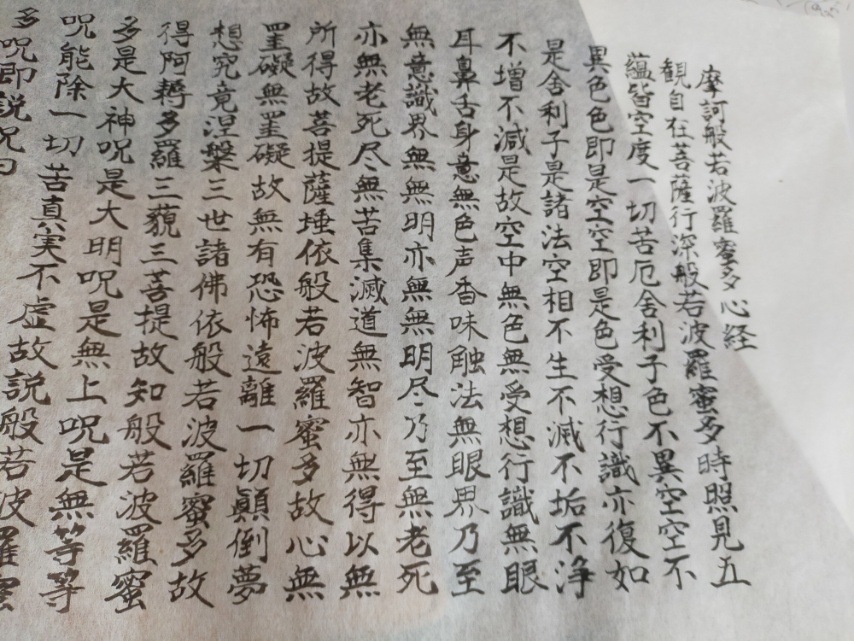 摩訶般若波羅蜜多心経
観自在菩薩行深般若波羅蜜多時照見五
蘊皆空度一切苦厄舎利子色不異空空不
異色色即是空空即是色受想行識亦復如
是舎利子是諸法空相不生不滅不垢不浄
不増不減是故空中無色無受想行識無眼
耳鼻舌身意無色声香味触法無眼界乃至
無意識界無無明亦無無明尽乃至無老死
亦無老死尽無苦集滅道無智亦無得以無
所得故菩提薩埵依般若波羅蜜多故心無
罣礙無罣礙故無有恐怖遠離一切顛倒夢
想究竟涅槃三世諸佛依般若波羅蜜多故
得阿耨多羅三藐三菩提故知般若波羅蜜
多是大神呪是大明呪是無上呪是無等等
呪能除一切苦真実不虚故説般若波羅蜜
多呪即説呪曰